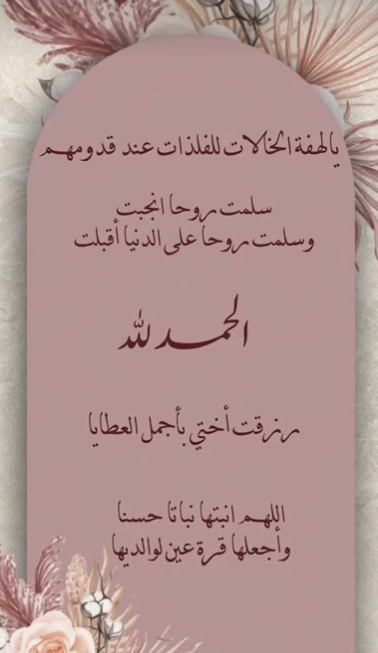 يالهفة الخالات للفلذات عند قدومهم
سلمت روحا انجبت
وسلمت روحا على الدنيا أقبلت
الحمد لله
رزقت أختي بأجمل العطايا
اللهم انبتها نباتا حسنا
وأجعلها قرة عين لوالديها